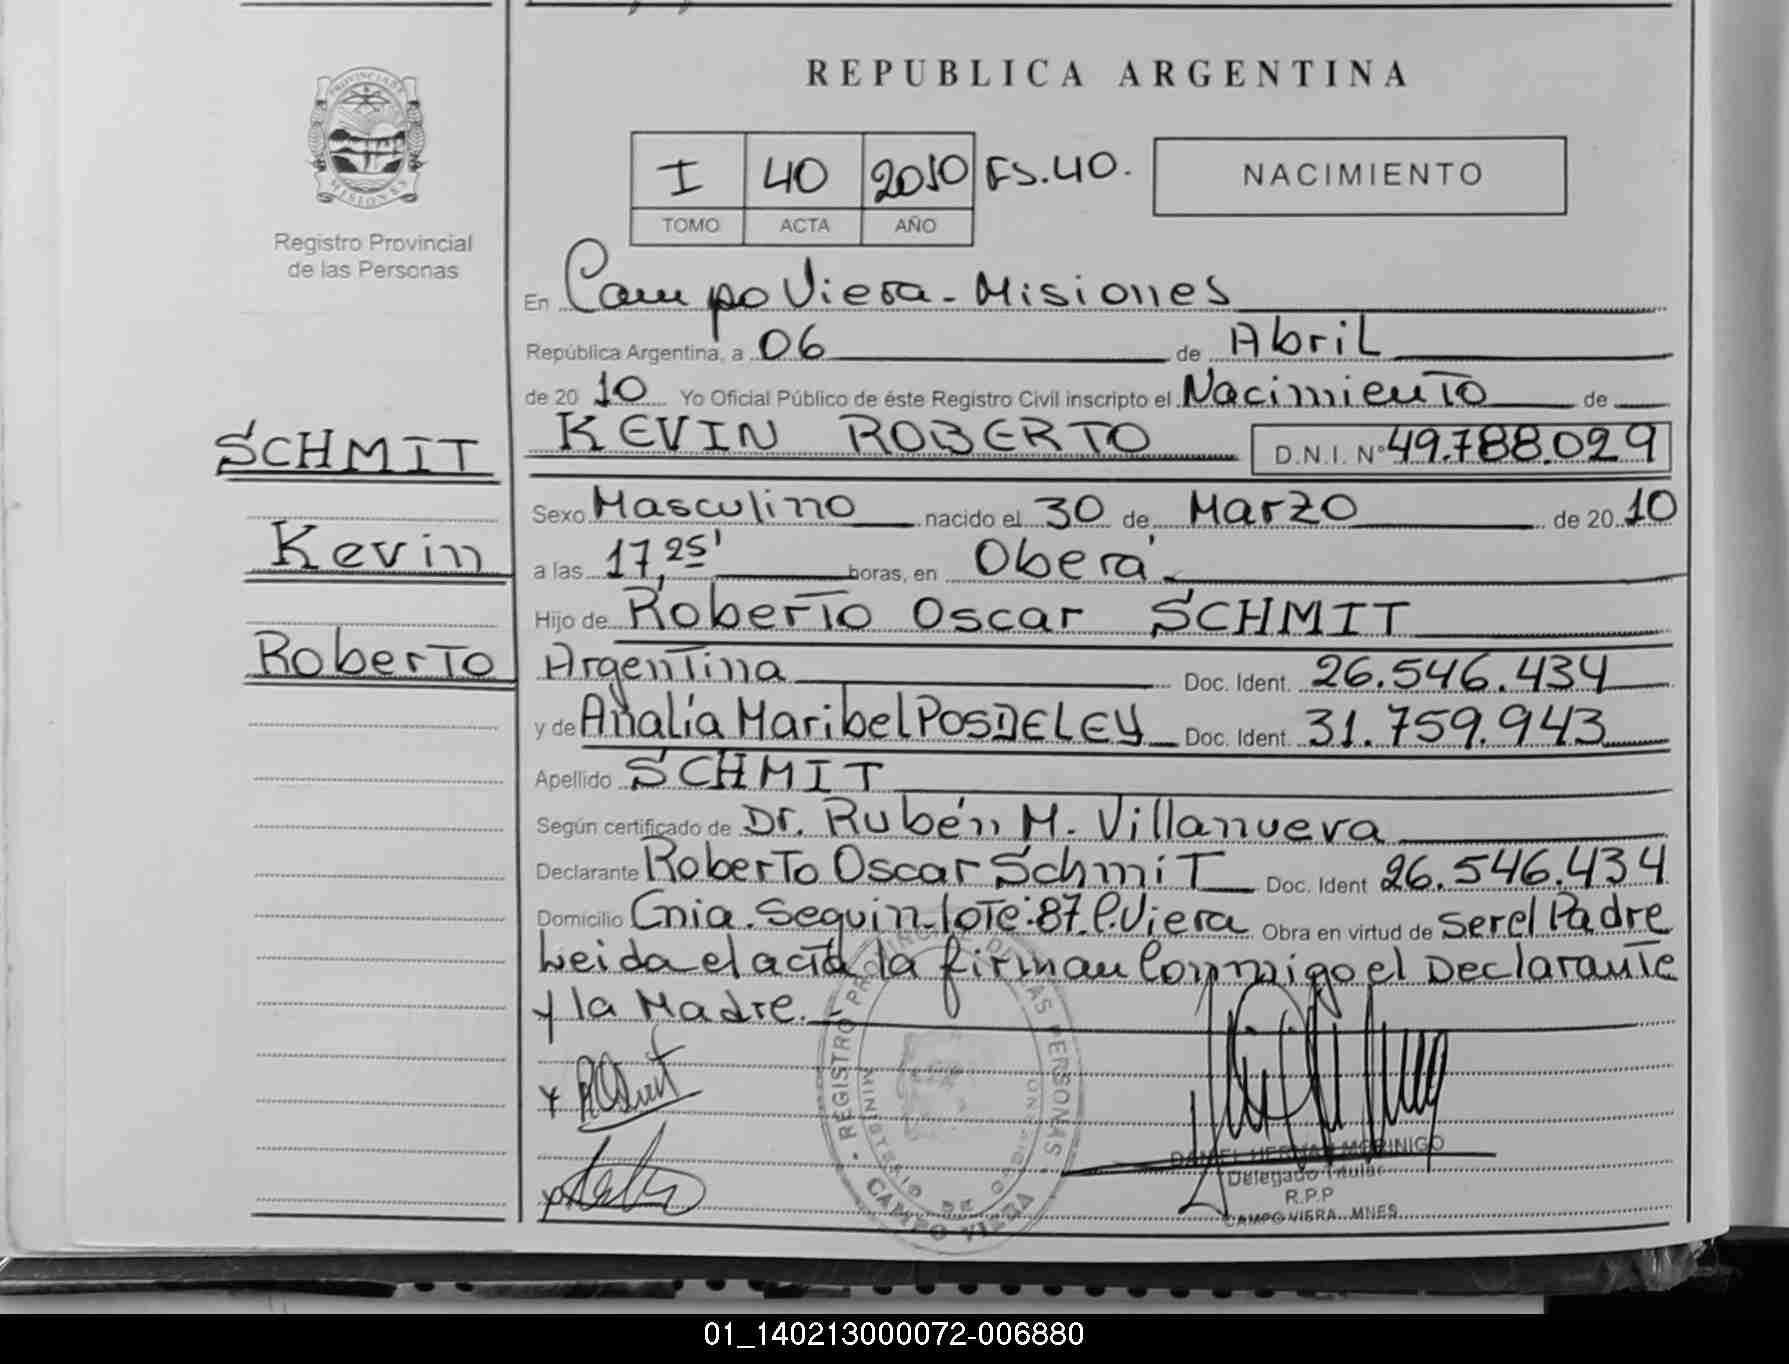 REPUBLICA ARGENTINA
PROVINCIA DE
MISIONES
Registro Provincial
de las Personas
I 40 2010 FS.40.
TOMO ACTA AÑO
NACIMIENTO
En Campo Viera - Misiones
República Argentina, a 06 de Abril
de 2010 Yo Oficial Público de éste Registro Civil inscripto el Nacimiento de
SCHMIT
KEVIN ROBERTO D.N.I. Nº 49.788.029
Sexo Masculino nacido el 30 de Marzo de 2010
Kevin
a las 17,25' horas, en Oberá
Hijo de Roberto Oscar SCHMIT
Roberto
Argentina Doc. Ident. 26.546.434
y de Analía Maribel POSDELEY Doc. Ident. 31.759.943
Apellido SCHMIT
Según certificado de Dr. Rubén M. Villanueva
Declarante Roberto Oscar Schmit Doc. Ident 26.546.434
Domicilio Cnia. Seguin lote: 87. C. Viera Obra en virtud de ser el Padre
Leida el acta la firman Conmigo el Declarante
y la Madre.
REGISTRO PROVINCIAL DE LAS PERSONAS
MINISTERIO DE GOBIERNO
CAMPO VIERA
DANIEL HERNAN MORINIGO
Delegado Titular
R.P.P
CAMPO VIERA MNES
01_140213000072-006880